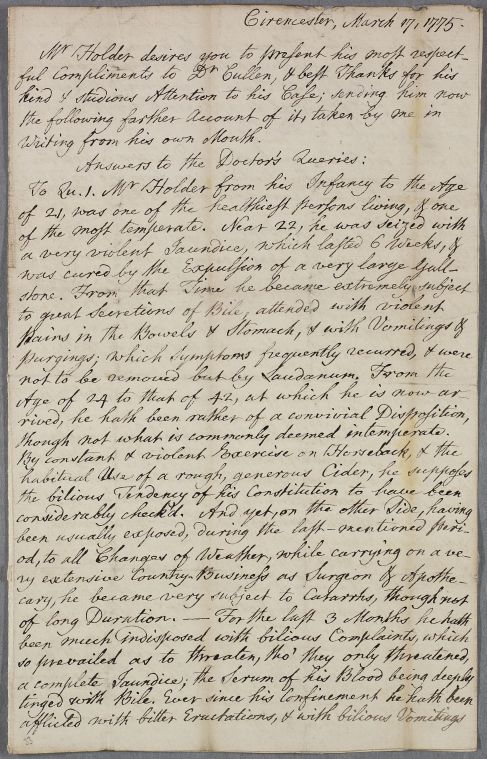 Cirencester, March 17, 1775.
Mr Holder desires you to present his most respect-
ful Compliments to Dr Cullen, & best Thanks for his
kind & studious Attention to his Case; sending him now
the following farther Account of it, taken by me in
Writing from his own Mouth.
Answers to the Doctor's Queries:
To Qu. 1. Mr Holder from his Infancy to the Age
of 21, was one of the healthiest Persons living, & one
of the most temperate. Near 22, he was seized with
a very violent Jaundice, which lasted 6 Weeks, &
was cured by the Expulsion of a very large Gall-
stone. From that Time he became extremely subject
to great Secretions of Bile, attended with violent
Pains in the Bowels & Stomach, & with Vomitings &
Purgings; which Symptoms frequently recurred, & were
not to be removed but by Laudanum. From the
Age of 24 to that of 42, at which he is now ar-
rived, he hath been rather of a convivial Disposition,
though not what is commonly deemed intemperate.
By constant & violent Exercise on Horseback, & the
habitual Use of a rough, generous Cider, he supposes
the bilious Tendency of his Constitution to have been
considerably check'd. And yet, on the other Side, having
been usually exposed, during the last-mentioned Peri-
od, to all Changes of Weather, while carrying on a ve-
ry extensive Country-Business as Surgeon & Apothe-
cary, he became very subject to Catarrhs, though not
of long Duration. — For the last 3 Months he hath
been much indisposed with bilious Complaints, which
so prevailed as to threaten, tho' they only threatened,
a complete Jaundice; the Serum of his Blood being deeply
tinged with Bile. Ever since his Confinement he hath been
afflicted with bitter Eructations, & with bilious Vomitings